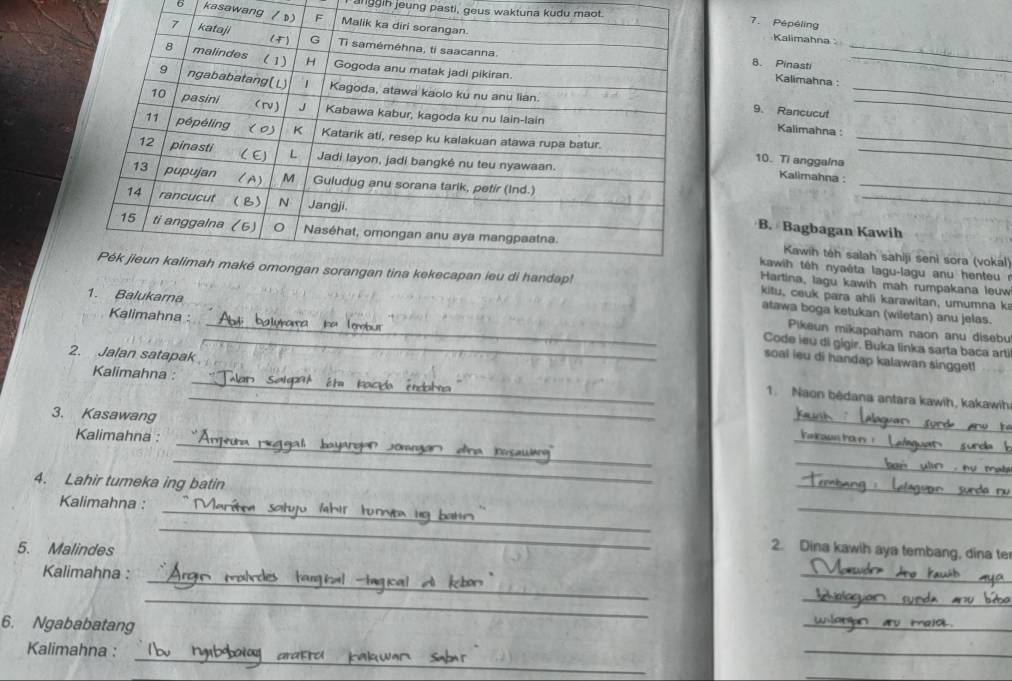 6 kasawang (D) F Malik ka diri sorangan.
anggih jeung pasti, geus waktuna kudu maot.
7 kataji (F) G Ti saméméhna, ti saacanna.
8 malindes (I) H Gogoda anu matak jadi pikiran.
9 ngababatang (L) I Kagoda, atawa kaolo ku nu anu lian.
10 pasini (N) J Kabawa kabur, kagoda ku nu lain-lain
11 pépéling (O) K Katarik ati, resep ku kalakuan atawa rupa batur.
12 pinasti (E) L Jadi layon, jadi bangké nu teu nyawaan.
13 pupujan (A) M Guludug anu sorana tarik, petir (Ind.)
14 rancucut (B) N Jangji.
15 ti anggalna (G) O Naséhat, omongan anu aya mangpaatna.
Pék jieun kalimah maké omongan sorangan tina kekecapan ieu di handap!
1. Balukarna
Kalimahna : Abdi balukarna ka lembur
2. Jalan satapak
Kalimahna : "Jalan satapak éta kacida éndahna"
3. Kasawang
Kalimahna : "Anjeuna ninggali bayangan sorangan dina kasawang"
4. Lahir tumeka ing batin
Kalimahna : " satuju lahir tumeka ing batin"
5. Malindes
Kalimahna : "Angin malindes tanghal di kebon"
6. Ngababatang
Kalimahna : "Ibu ngababatang kalawan sabar"
7. Pépéling
Kalimahna :
8. Pinasti
Kalimahna :
9. Rancucut
Kalimahna :
10. Ti anggalna
Kalimahna :
B. Bagbagan Kawih
Kawih téh salah sahiji seni sora (vokal)
kawih téh nyaéta lagu-lagu anu henteu
Hartina, lagu kawih mah rumpakana leuw
kitu, ceuk para ahli karawitan, umumna ka
atawa boga ketukan (wiletan) anu jelas.
Pikeun mikapaham naon anu disebu
Code ieu di gigir. Buka linka sarta baca arti
soal ieu di handap kalawan singget!
1. Naon bédana antara kawih, kakawih
kawih : Lalaguan sunda anu ka
kakawihan : Lalaguan sunda b
bari ulin, nu
Tembang : Lalaguan sunda nu
2. Dina kawih aya tembang, dina te
dina kawih aya
sunda anu béba
wilangan